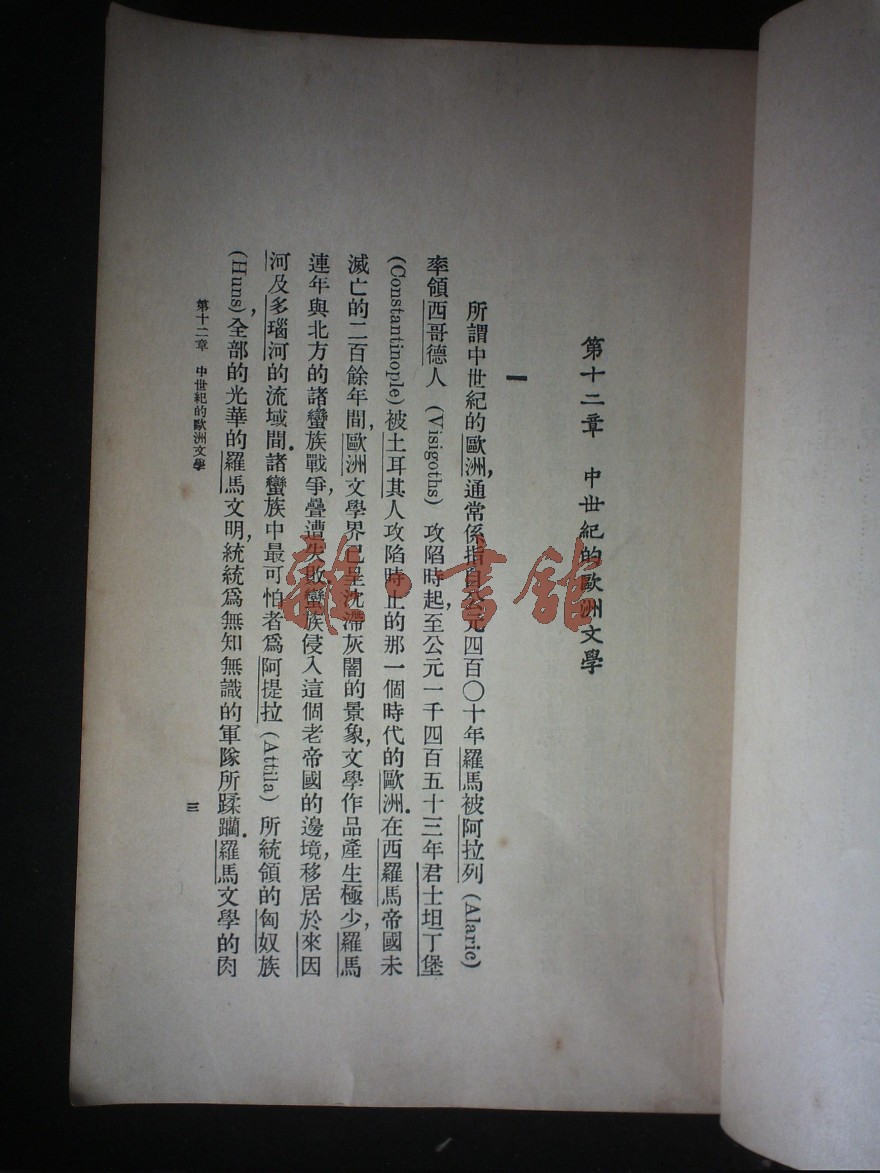 第十二章 中世紀的歐洲文學
一
所謂中世紀的歐洲,通常係指自公元四百〇十年羅馬被阿拉列(Alaric)
率領西哥德人(Visigoths)攻陷時起,至公元一千四百五十三年君士坦丁堡
(Constantinople)被土耳其人攻陷時止的那一個時代的歐洲.在西羅馬帝國未
滅亡的二百餘年間,歐洲文學界已呈沈滯灰闇的景象,文學作品產生極少,羅馬
連年與北方的諸蠻族戰爭,疊遭失敗,蠻族侵入這個老帝國的邊境,移居於來因
河及多瑙河的流域間.諸蠻族中最可怕者爲阿提拉(Attila)所統領的匈奴族
(Huns),全部的光華的羅馬文明,統統爲無知無識的軍隊所蹂躪.羅馬文學的肉
第十二章 中世紀的歐洲文學
三
雜·書館